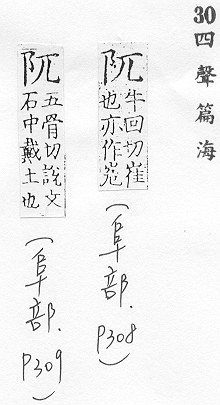 30四聲篇海
阢
牛回切崔
也亦作峞
(阜部.P308)
阢
五骨切說文
石中戴土也
(阜部.P309)